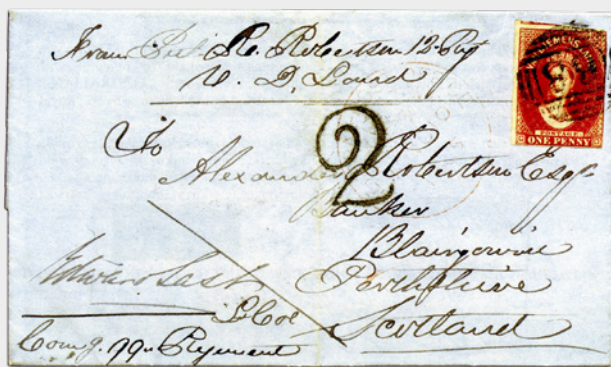 From R. Robertson 12 Rgt
V. D. Land
2
To
Alexander Robertson Esqr
Banker
Blairgowrie
Perthshire
Scotland
Edward Last
Lt Col
Comg. 99th Regiment
POSTAGE
ONE PENNY